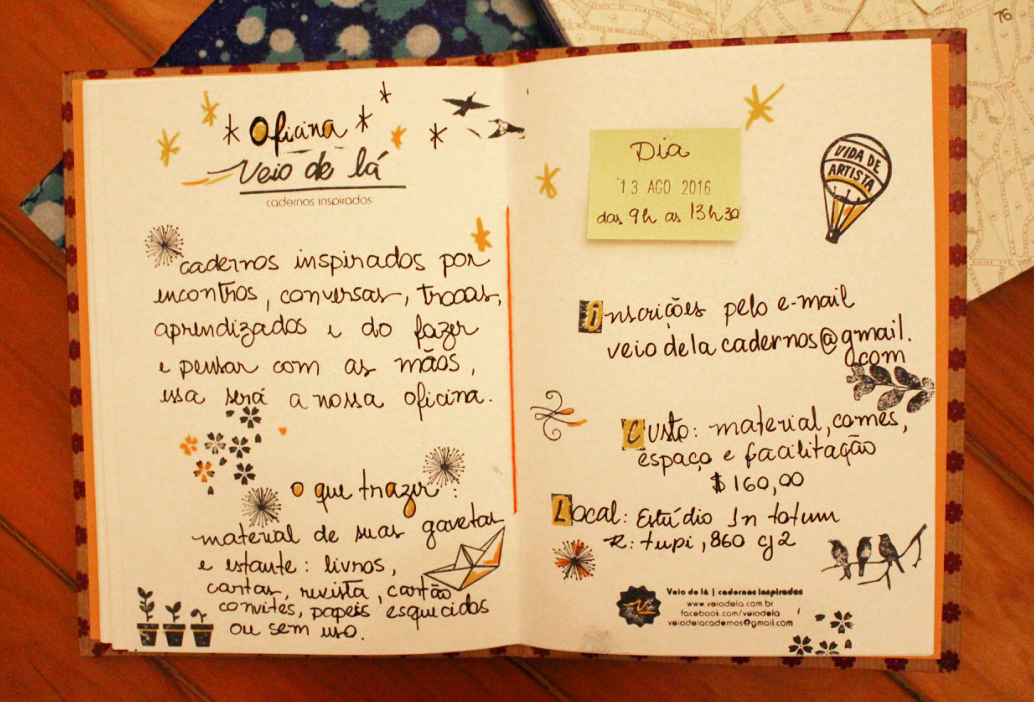 Oficina
Veio de lá
cadernos inspirados
cadernos inspirados por
encontros, conversas, trocas,
aprendizados e do fazer
e pensar com as mãos,
essa será a nossa oficina.
o que trazer:
material de suas gavetas
e estante: livros,
cartas, revista, cartão
convites, papeis esquecidos
ou sem uso.
Dia
13 AGO 2016
das 9h as 13h30
VIDA DE
ARTISTA
inscrições pelo e-mail
veiodelacadernos@gmail.
com
Custo: material, comes,
espaço e facilitação
$160,00
Local: Estúdio In totum
R: tupi, 860 cj2
Veio de lá | cadernos inspirados
www.veiodela.com.br
facebook.com/veiodela
veiodelacadernos@gmail.com
76